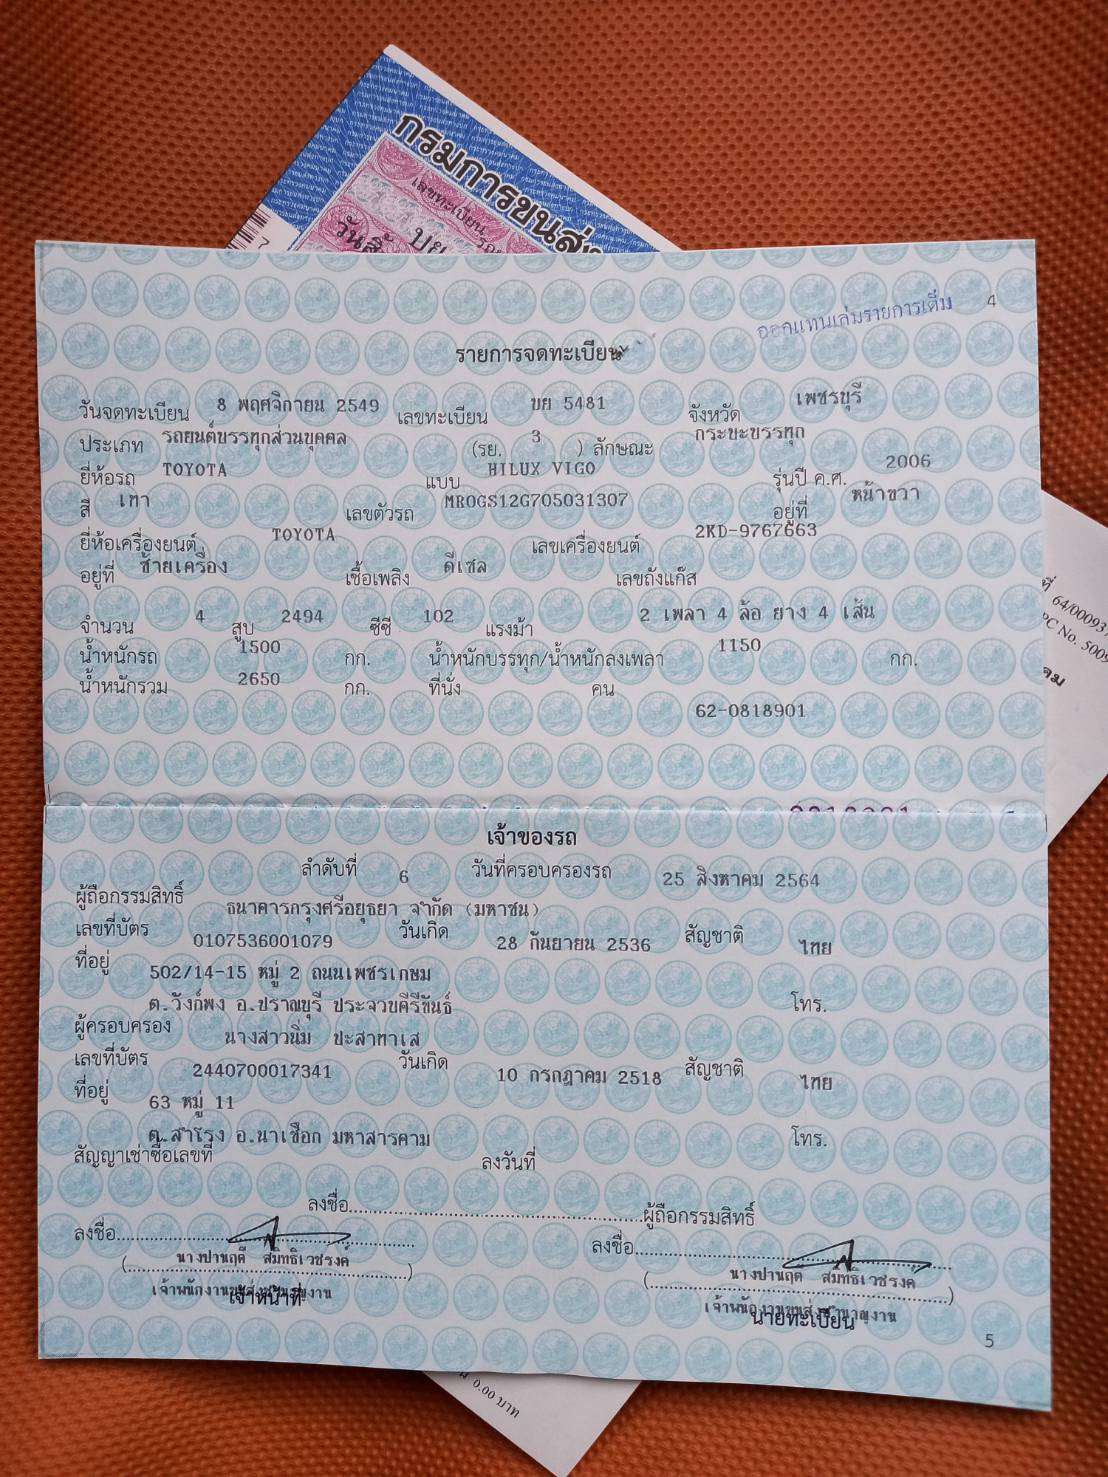 กรมการขนส่ง
เลขทะเบียน
ออกแทนเล่มรายการเดิม 4
รายการจดทะเบียน
วันจดทะเบียน 8 พฤศจิกายน 2549 เลขทะเบียน บย 5481 จังหวัด เพชรบุรี
ประเภท รถยนต์บรรทุกส่วนบุคคล (รย. 3 ) ลักษณะ กระบะบรรทุก
ยี่ห้อรถ TOYOTA แบบ HILUX VIGO รุ่นปี ค.ศ. 2006
สี เทา เลขตัวรถ MR0GS12G705031307 อยู่ที่ หน้าขวา
ยี่ห้อเครื่องยนต์ TOYOTA เลขเครื่องยนต์ 2KD-9767663
อยู่ที่ ซ้ายเครื่อง เชื้อเพลิง ดีเซล เลขถังแก๊ส
จำนวน 4 สูบ 2494 ซีซี 102 แรงม้า 2 เพลา 4 ล้อ ยาง 4 เส้น
น้ำหนักรถ 1500 กก. น้ำหนักบรรทุก/น้ำหนักลงเพลา 1150 กก.
น้ำหนักรวม 2650 กก. ที่นั่ง คน
62-0818901
เจ้าของรถ
ลำดับที่ 6 วันที่ครอบครองรถ 25 สิงหาคม 2564
ผู้ถือกรรมสิทธิ์ ธนาคารกรุงศรีอยุธยา จำกัด (มหาชน)
เลขที่บัตร 0107536001079 วันเกิด 28 กันยายน 2536 สัญชาติ ไทย
ที่อยู่ 502/14-15 หมู่ 2 ถนนเพชรเกษม
ต.วังก์พง อ.ปราณบุรี ประจวบคีรีขันธ์ โทร.
ผู้ครอบครอง นางสาวนิ่ม ปะสาทาเส
เลขที่บัตร 2440700017341 วันเกิด 10 กรกฎาคม 2518 สัญชาติ ไทย
ที่อยู่ 63 หมู่ 11
ต.สำโรง อ.นาเชือก มหาสารคาม โทร.
สัญญาเช่าซื้อเลขที่ ลงวันที่
ลงชื่อ ผู้ถือกรรมสิทธิ์
ลงชื่อ ลงชื่อ
(นางปานฤดี สมิทธิเวชรงค์) (นางปานฤดี สมิทธิเวชรงค์)
เจ้าพนักงานขนส่งชำนาญงาน เจ้าพนักงานขนส่งชำนาญงาน
เจ้าหน้าที่ นายทะเบียน
5
ที่ 64/00093
PC No. 5009
คม
0.00 บาท